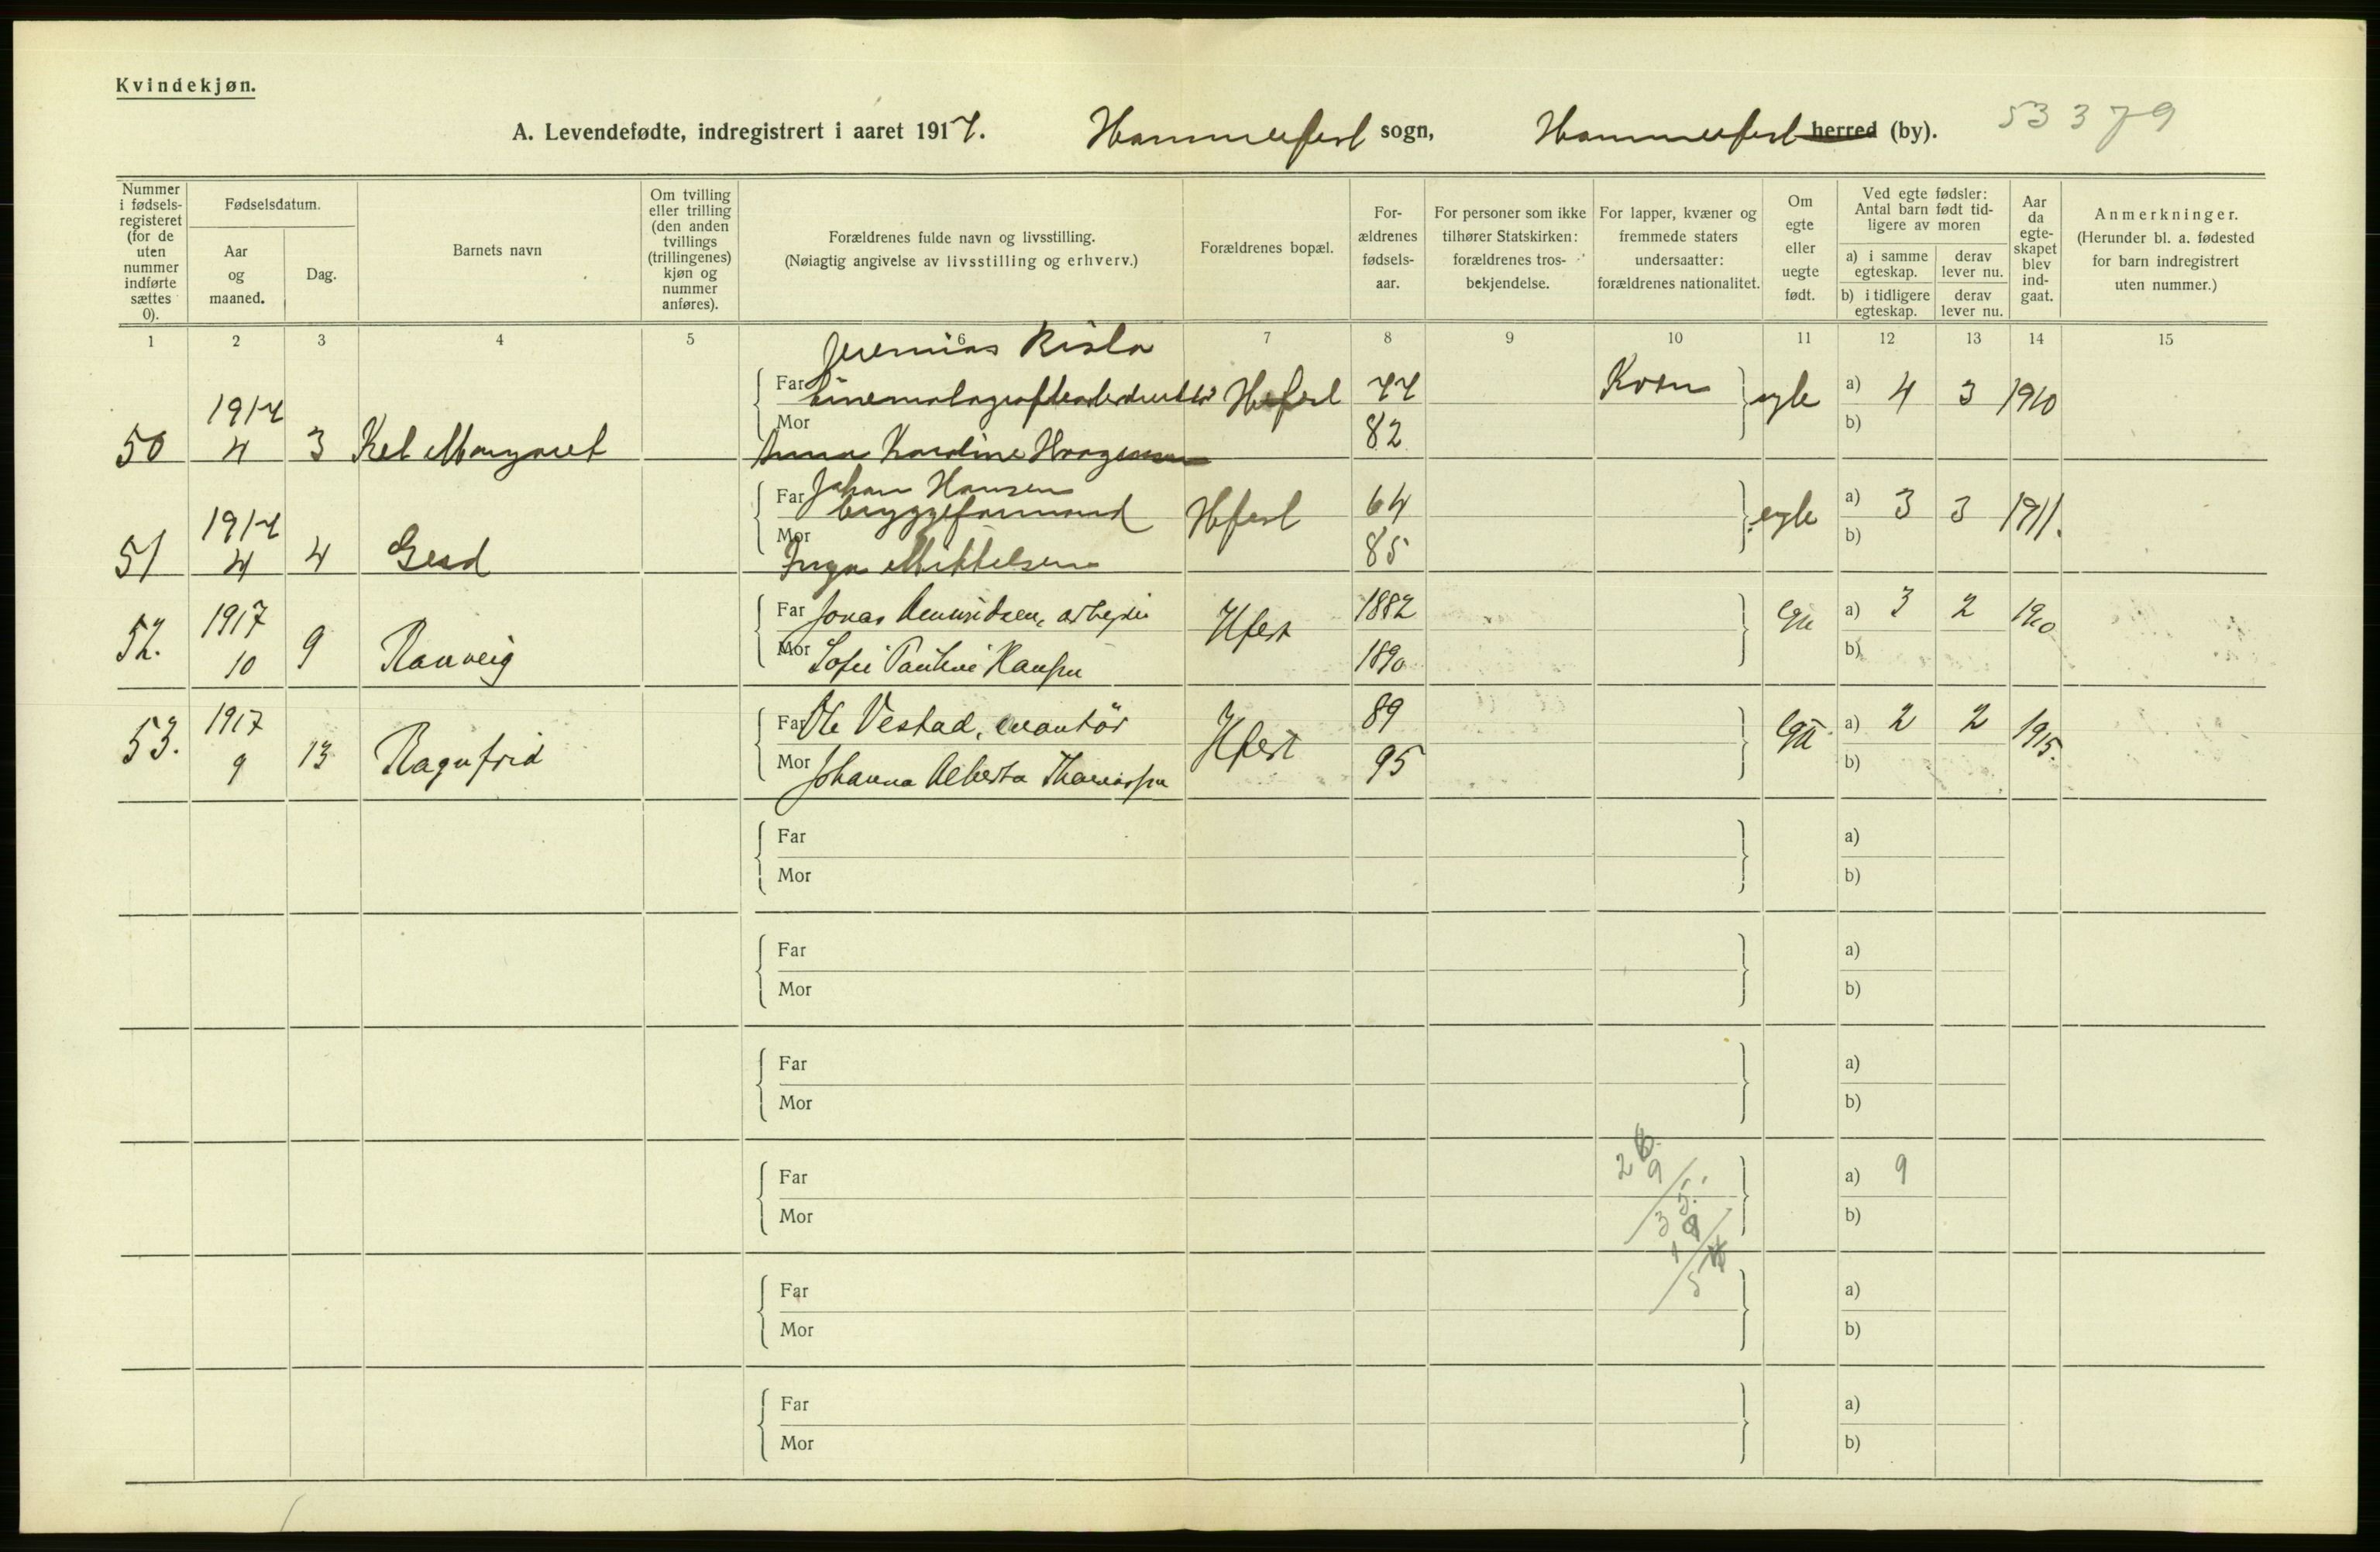 Kvindekjøn.
A. Levendefødte, indregistrert i aaret 1917. Hammerfest sogn, Hammerfest herred (by). 53 379
Nummer i fødsels-registeret (for de uten nummer indførte sættes 0).
Fødselsdatum.
Aar og maaned.
Dag.
Barnets navn
Om tvilling eller trilling (den anden tvillings (trillingenes) kjøn og nummer anføres).
Forældrenes fulde navn og livsstilling.
(Nøiagtig angivelse av livsstilling og erhverv.)
Forældrenes bopæl.
For-ældrenes fødsels-aar.
For personer som ikke tilhører Statskirken: forældrenes tros-bekjendelse.
For lapper, kvæner og fremmede staters undersaatter: forældrenes nationalitet.
Om egte eller uegte født.
Ved egte fødsler: Antal barn født tid-ligere av moren
a) i samme egteskap.
derav lever nu.
b) i tidligere egteskap.
derav lever nu.
Aar da egte-skapet blev ind-gaat.
Anmerkninger.
(Herunder bl. a. fødested for barn indregistrert uten nummer.)
1 2 3 4 5 6 7 8 9 10 11 12 13 14 15
Jeremias Kisla
Far Hfest 77 Kvæn egte a) 4 3 1910
1917
Mor 82 b)
50 4 3 Margaret Anna Karoline Haagensen
Far Johan Hansen
bryggeformand Hfest 64 egte a) 3 3 1911.
1917
Mor 85 b)
51 4 4 Gerd Inga Mikkelsen
52. 1917 10 9 Ranveig
Far Jonas Amundsen, arbeider Hfest 1882 egte a) 3 2 1910
Mor Sofie Pauline Hansen 1890 b)
53. 1917 9 13 Ragnfrid
Far Ole Vestad, Hfest 89 egte a) 2 2 1915.
Mor Johanna Alberta 95 b)
Far a)
Mor b)
Far a)
Mor b)
Far a)
Mor b)
Far a) 9
Mor b)
Far a)
Mor b)
Far a)
Mor b)